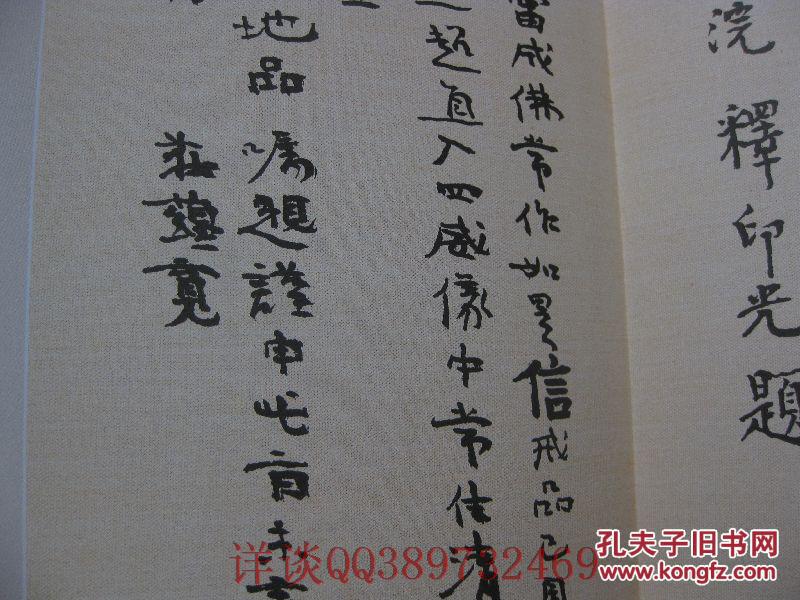 浣 釋印光題
當成佛常作如是信戒品已周
超直入四威儀中常住清
地品 囑題謹申此旨
莊蘊寬
详谈QQ389732469
孔夫子旧书网
www.kongfz.com